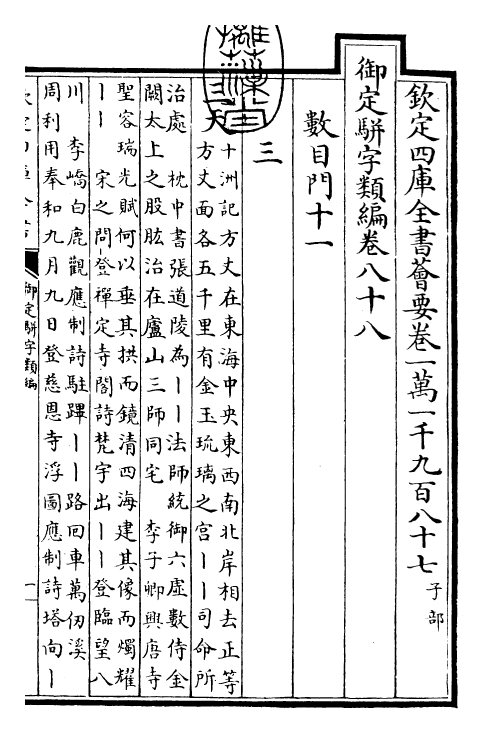 欽定四庫全書薈要卷一萬一千九百八十七子部
御定駢字類編卷八十八
數目門十一
三
三天
十洲記方丈在東海中央東西南北岸相去正等
方丈面各五千里有金玉琉璃之宮丨丨司命所
治處　枕中書張道陵為丨丨法師統御六虛數侍金
闕太上之股肱治在廬山三師同宅　李子卿興唐寺
聖容瑞光賦何以垂其拱而鏡清四海建其像而燭耀
丨丨　宋之問登禪定寺閣詩梵宇出丨丨登臨望八
川　李嶠白鹿觀應制詩駐蹕丨丨路回車萬仞溪
周利用奉和九月九日登慈恩寺浮圖應制詩塔向丨
御定駢字類編
一